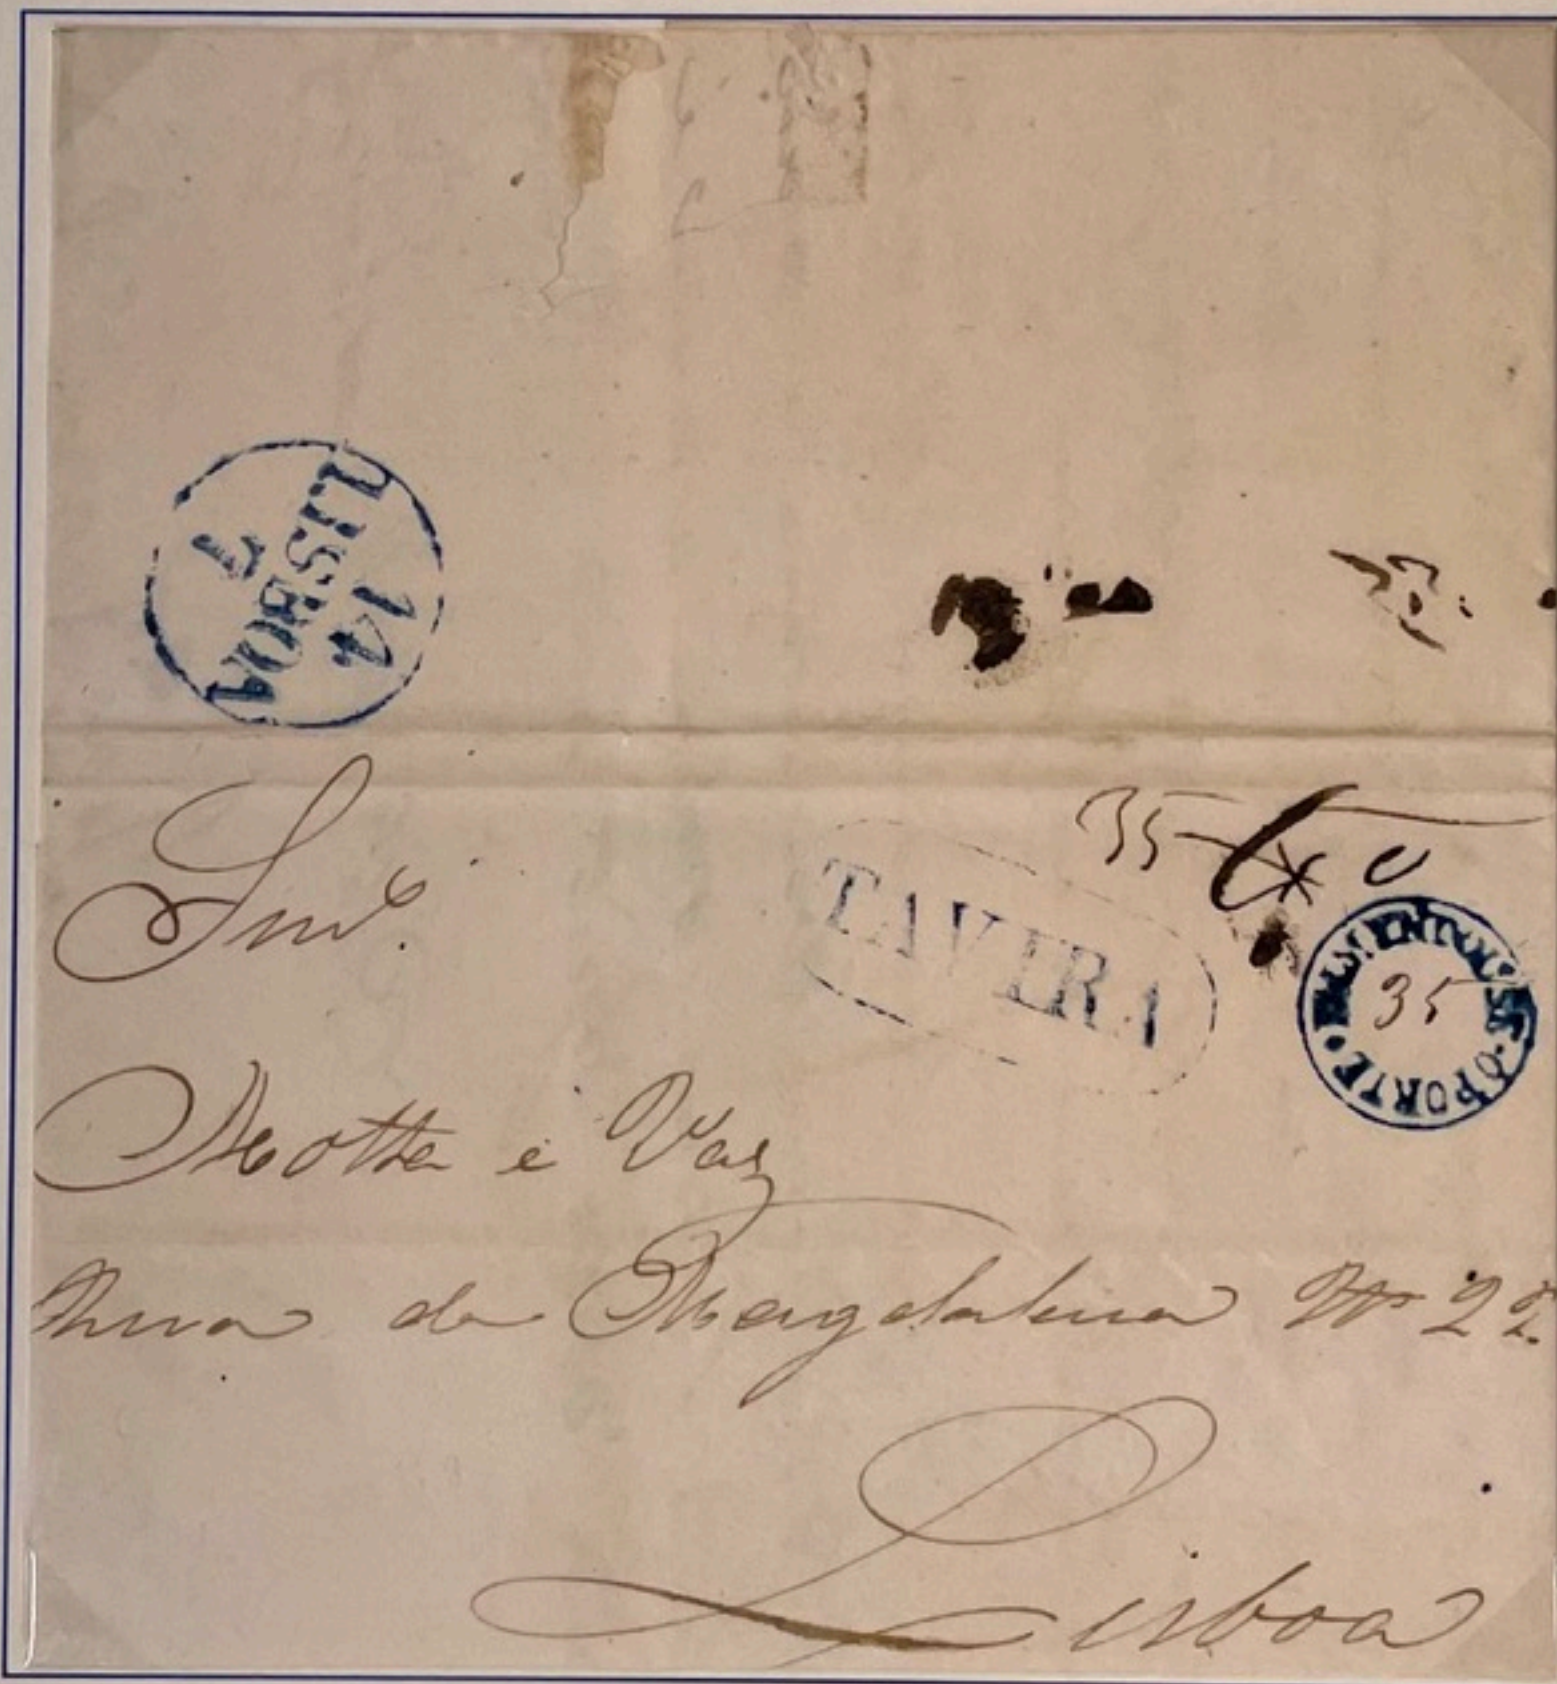 14
LISBOA
7
35
TAVIRA
35
PORTE
Motta e Vaz
Rua da Magdalena Nº 22
Lisboa